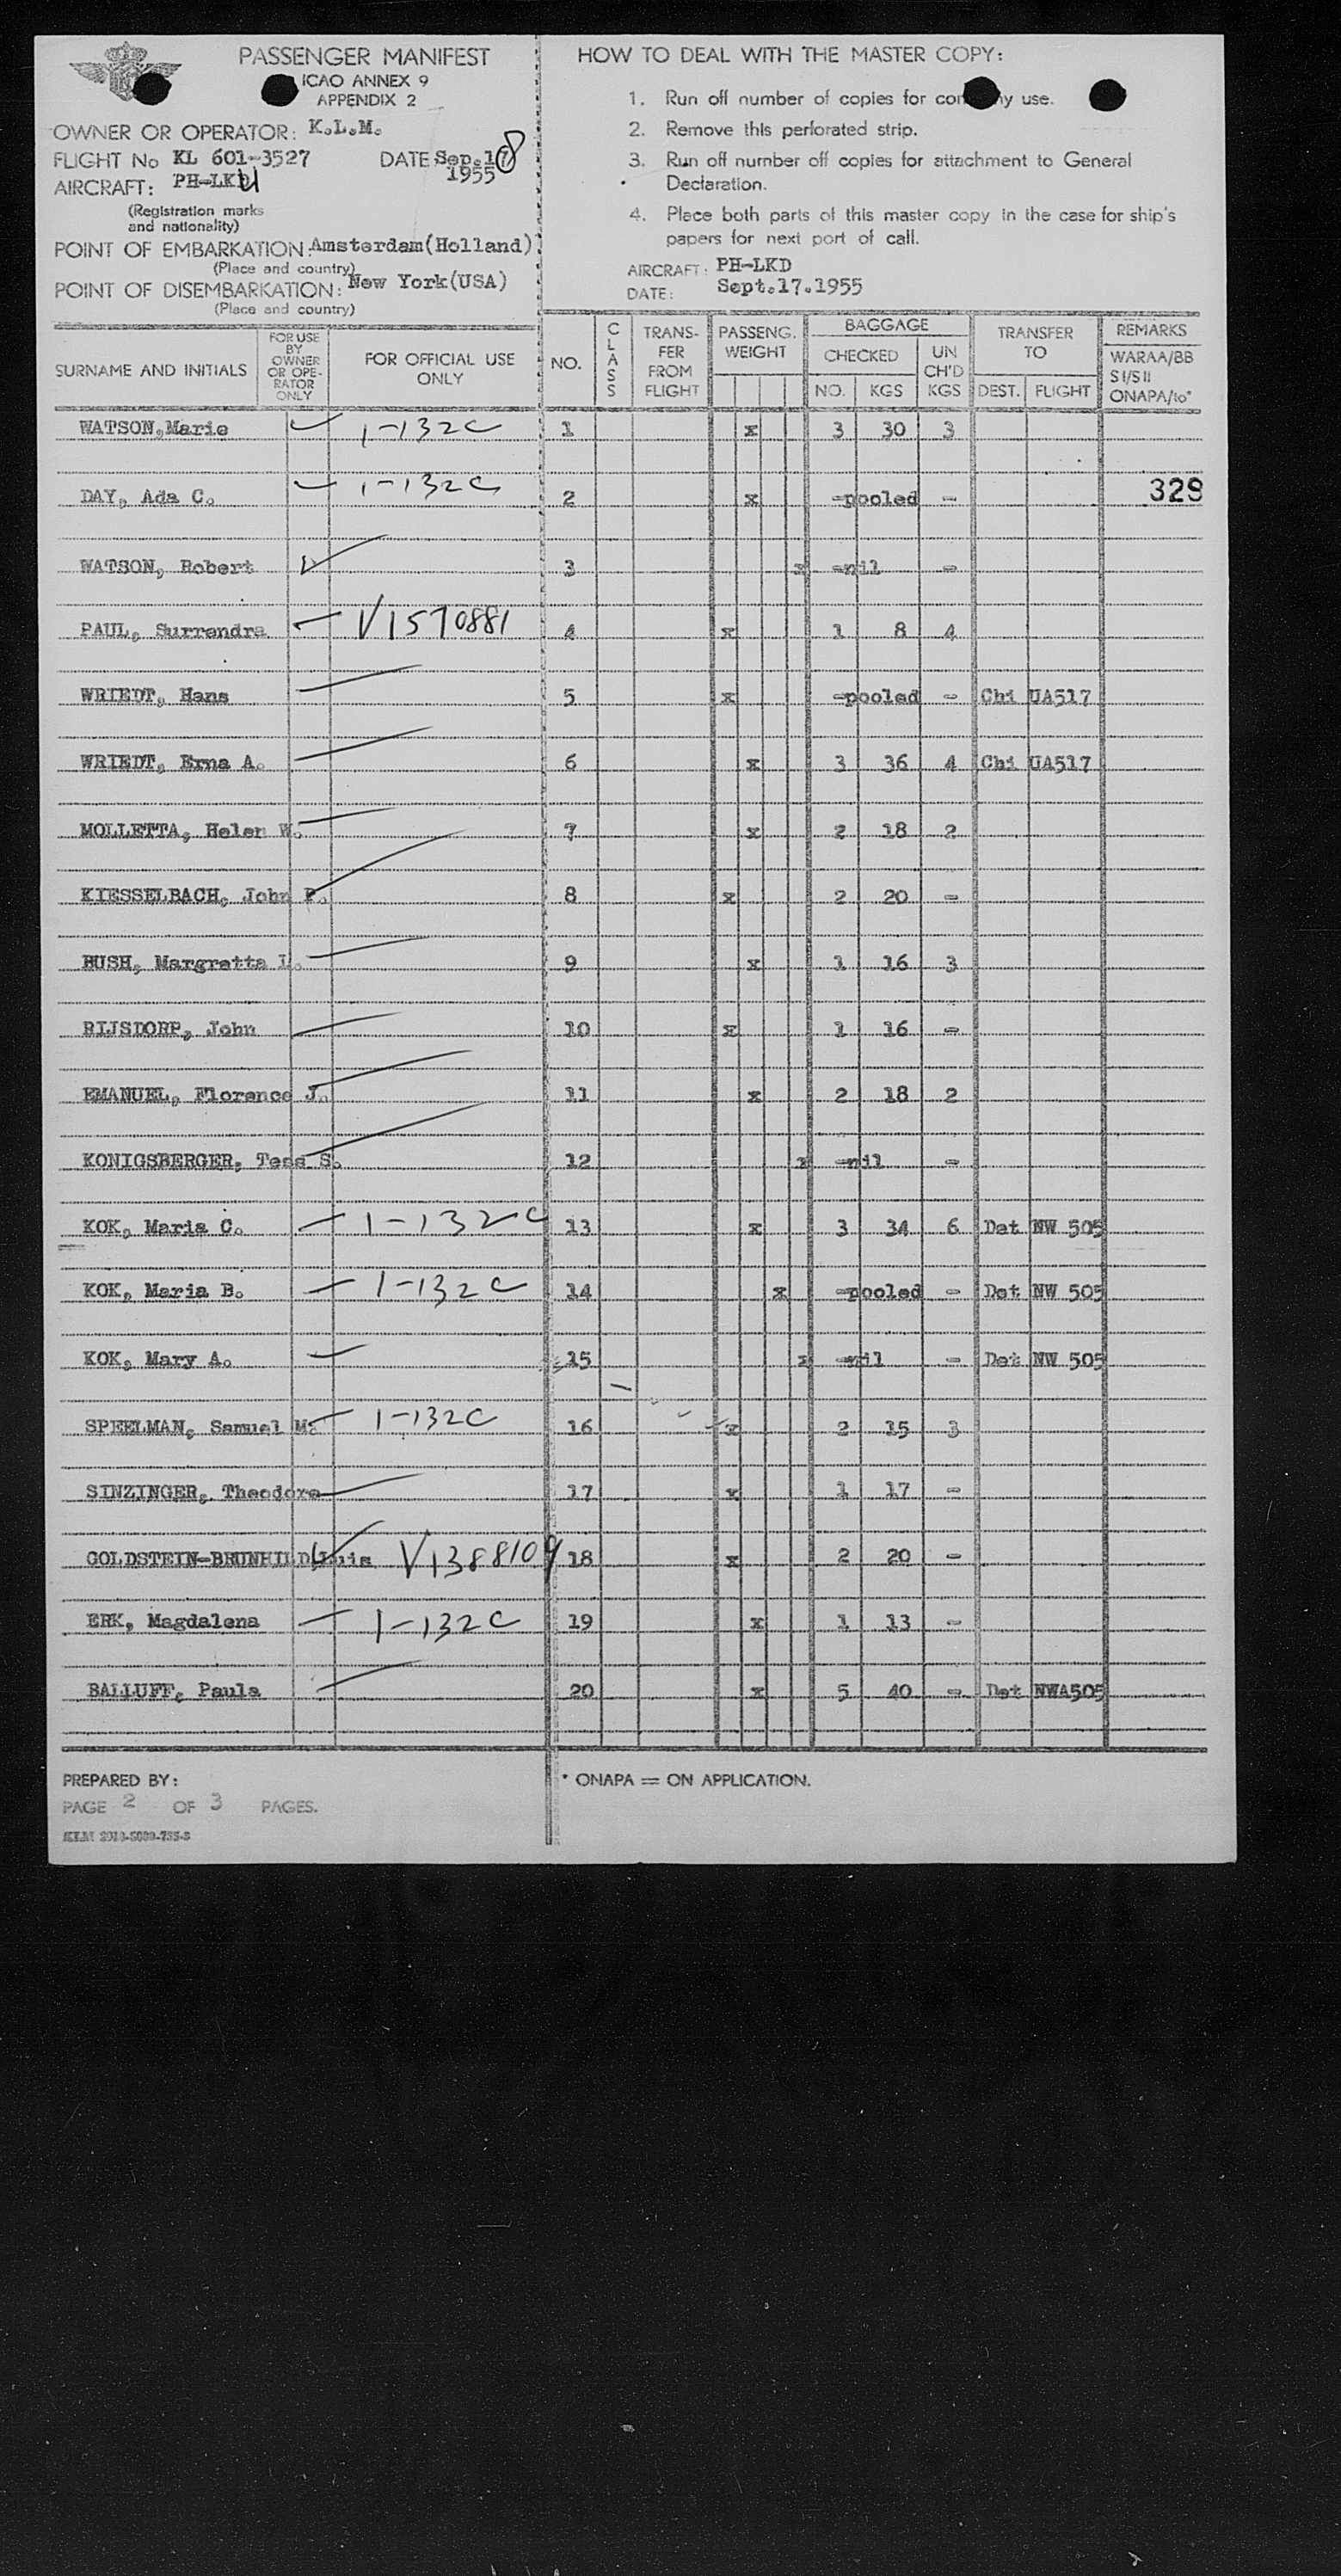 PASSENGER MANIFEST
ICAO ANNEX 9
APPENDIX 2
OWNER OR OPERATOR: K.L.M.
FLIGHT No KL 601-3527 DATE Sep.18
1955
AIRCRAFT: PH-LKU
(Registration marks
and nationality)
POINT OF EMBARKATION: Amsterdam(Holland)
(Place and country)
POINT OF DISEMBARKATION: New York(USA)
(Place and country)
HOW TO DEAL WITH THE MASTER COPY:
1. Run off number of copies for company use.
2. Remove this perforated strip.
3. Run off number off copies for attachment to General
Declaration.
4. Place both parts of this master copy in the case for ship's
papers for next port of call.
AIRCRAFT: PH-LKD
DATE: Sept.17.1955
SURNAME AND INITIALS
FOR USE
BY
OWNER
OR OPE-
RATOR
ONLY
FOR OFFICIAL USE
ONLY
NO.
CLASS
TRANS-
FER
FROM
FLIGHT
PASSENG.
WEIGHT
BAGGAGE
CHECKED
NO. KGS
UN
CH'D
KGS
TRANSFER
TO
DEST. FLIGHT
REMARKS
WARAA/BB
SI/SII
ONAPA/to*
WATSON,Marie 1-132C 1 x 3 30 3
DAY, Ada C. 1-132C 2 x -pooled - 329
WATSON, Robert 3 x -nil -
PAUL, Surrendra V1570881 4 x 1 8 4
WRIEDT, Hans 5 x -pooled - Chi UA517
WRIEDT, Erna A. 6 x 3 36 4 Chi UA517
MOLLETTA, Helen W. 7 x 2 18 2
KIESSELBACH, John P. 8 x 2 20 -
BUSH, Margretta L. 9 x 1 16 3
RIJSDORP, John 10 x 1 16 -
EMANUEL, Florence J. 11 x 2 18 2
KONIGSBERGER, Tess S. 12 x -nil -
KOK, Maria C. 1-132C 13 x 3 34 6 Det NW 505
KOK, Maria B. 1-132C 14 x -pooled - Det NW 505
KOK, Mary A. 15 x -nil - Det NW 505
SPEELMAN, Samuel M. 1-132C 16 x 2 15 3
SINZINGER, Theodore 17 x 1 17 -
GOLDSTEIN-BRUNHILD,Luis V1388109 18 x 2 20 -
ERK, Magdalena 1-132C 19 x 1 13 -
BALLUFF, Paula 20 x 5 40 - Det NWA505
PREPARED BY:
PAGE 2 OF 3 PAGES.
* ONAPA = ON APPLICATION.